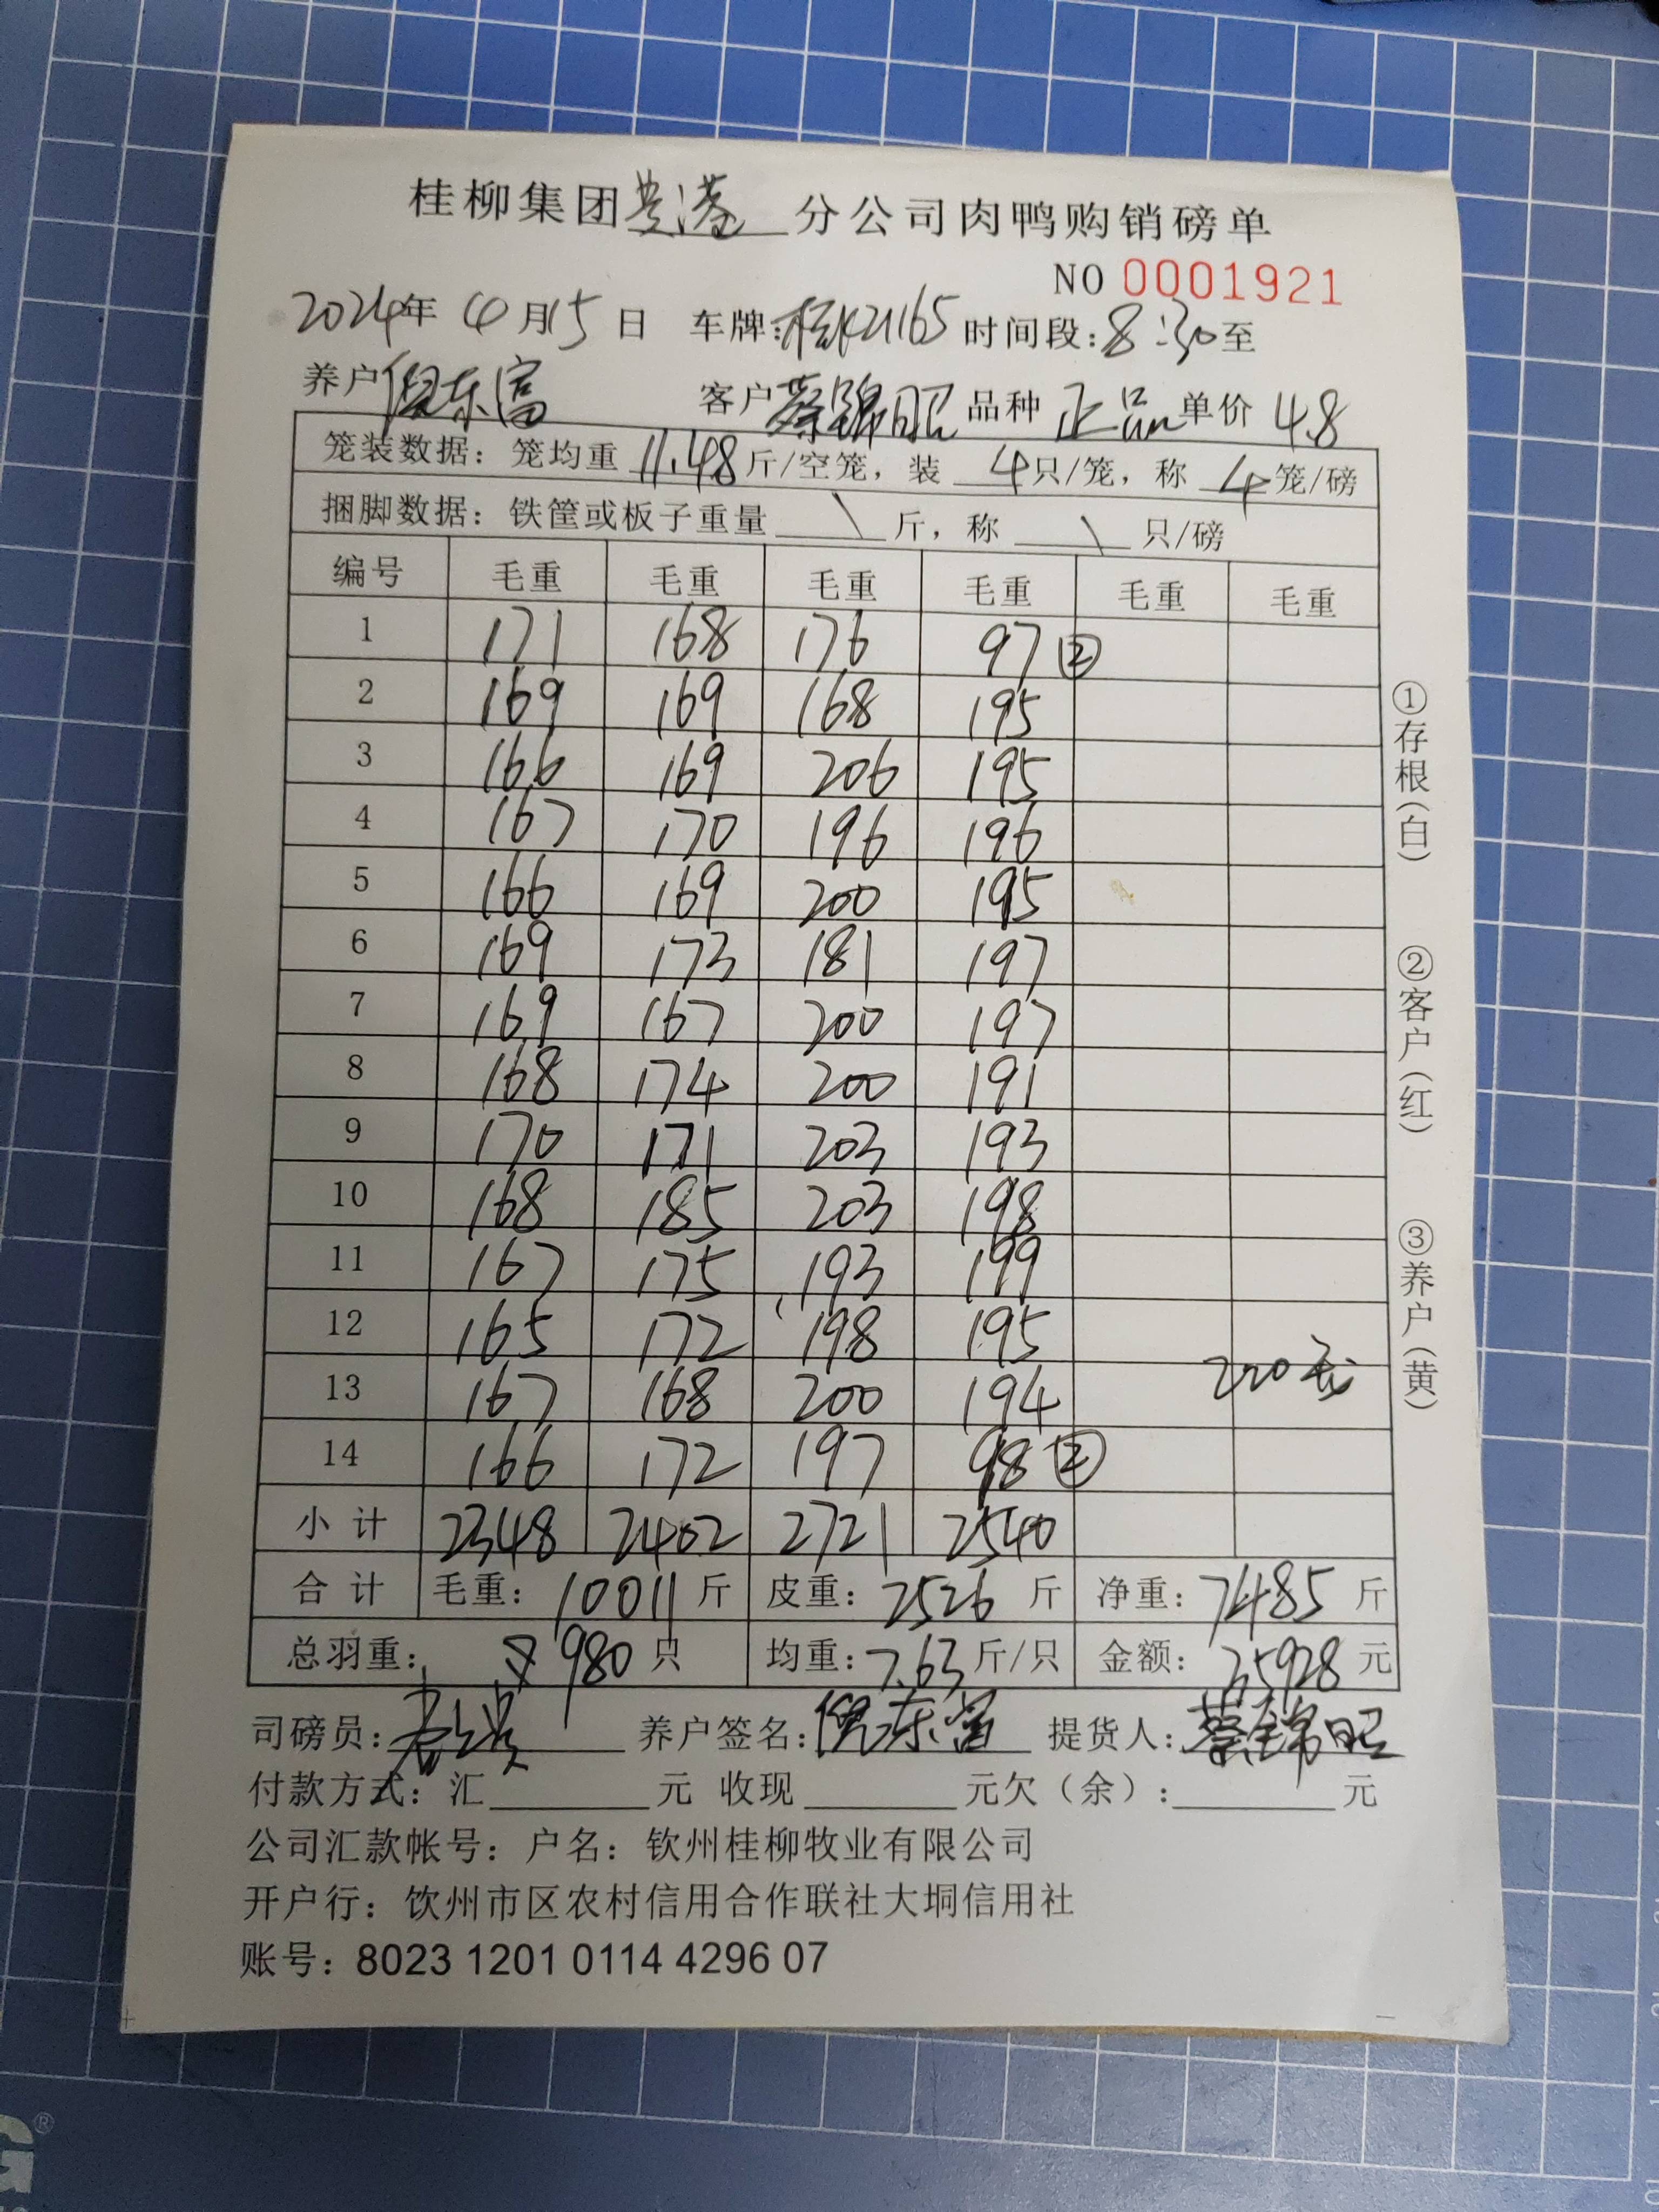 桂柳集团贵港分公司肉鸭购销磅单
NO 0001921
2024年 4月15日 车牌:桂K21165 时间段:8:30至
养户 倪东富 客户 蔡锦昭 品种 正品 单价 4.8
笼装数据：笼均重 11.48 斤/空笼，装 4 只/笼，称 4 笼/磅
捆脚数据：铁筐或板子重量 \ 斤，称 \ 只/磅
编号 毛重 毛重 毛重 毛重 毛重 毛重
1 171 168 176 97 ②
2 169 169 168 195
3 166 169 206 195
4 167 170 196 196
5 166 169 200 195
6 169 173 181 197
7 169 167 200 197
8 168 174 200 191
9 170 171 203 193
10 168 185 203 198
11 167 175 193 199
12 165 172 198 195
13 167 168 200 194 220毛
14 166 172 197 98 ②
小计 2348 2402 2721 2540
合计 毛重：10011 斤 皮重：2526 斤 净重：7485 斤
总羽重： 980 只 均重：7.63 斤/只 金额：35928 元
司磅员: 养户签名:倪东富 提货人:蔡锦昭
付款方式：汇 元 收现 元欠（余）: 元
公司汇款帐号：户名：钦州桂柳牧业有限公司
开户行：饮州市区农村信用合作联社大垌信用社
账号：8023 1201 0114 4296 07
①存根（白）
②客户（红）
③养户（黄）